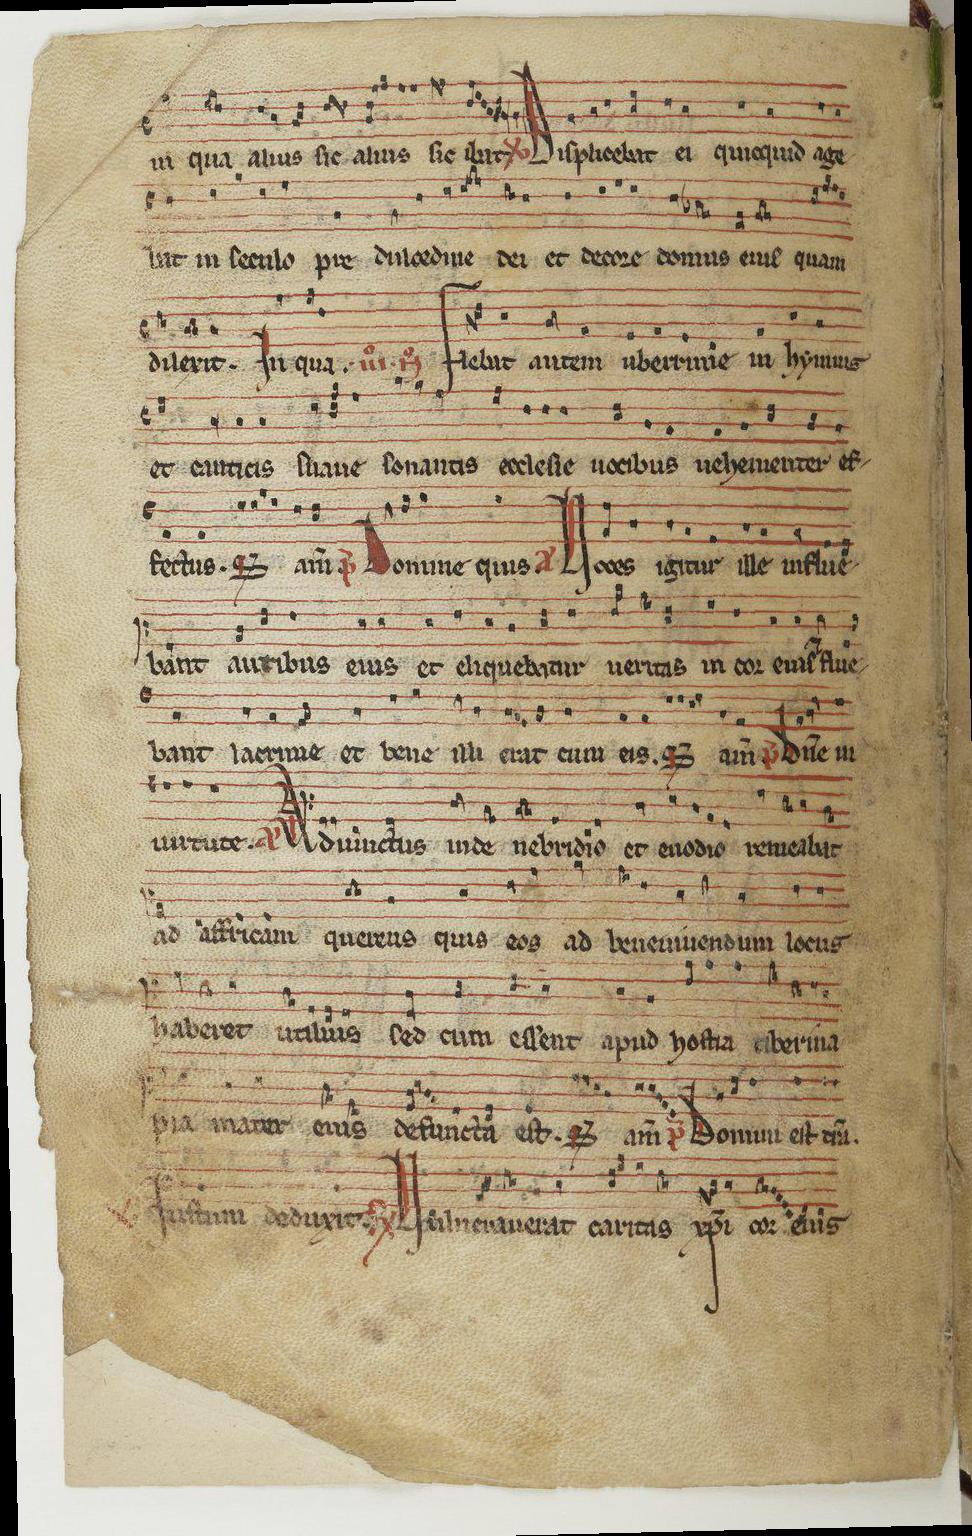 in qua alius sic alius sic ibat ℣ Displicebat ei quicquid age
bat in seculo pre dulcedine dei et decore domus eius quam
dilexit. In qua. Flebat autem uberrime in hymnis
et canticis suaue sonantis ecclesie uocibus uehementer af
fectus. am̄ Domine quis. Uoces igitur ille influe
bant auribus eius et eliquebatur ueritas in cor eius flue
bant lacrime et bene illi erat cum eis. am̄ Dn̄e in
uirtute. Adiunctus inde nebridio et euodio remeabat
ad affricam querens quis eos ad beneuiuendum locus
haberet utilius sed cum essent apud hostia tiberina
pia mater eius defuncta est. am̄ Domini est t̄ra.
Iustum deduxit. Uulnerauerat caritas xp̄i cor eius